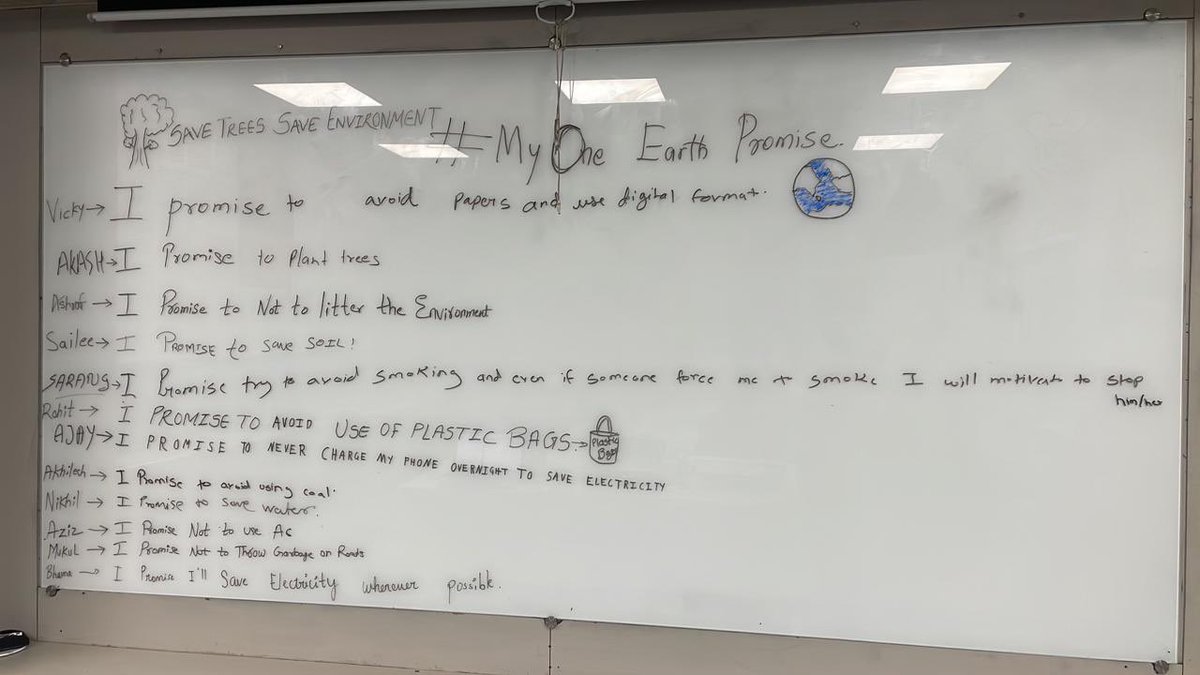 SAVE TREES SAVE ENVIRONMENT
# My One Earth Promise.
Vicky → I promise to avoid papers and use digital format.
AKASH → I Promise to Plant trees
→ I Promise to Not to litter the Environment
Sailee → I PROMISE to save SOIL!
SARANG → I Promise try to avoid smoking and even if someone force me to smoke I will motivate to stop
him/her
Rohit → I PROMISE TO AVOID USE OF PLASTIC BAGS →
Plastic
Bag
AJAY → I PROMISE TO NEVER CHARGE MY PHONE OVERNIGHT TO SAVE ELECTRICITY
Akhilesh → I Promise to avoid using coal.
Nikhil → I Promise to save water.
Aziz → I Promise Not to use AC
Mukul → I Promise Not to Throw Garbage on Roads
→ I Promise I'll Save Electricity whenever possible.